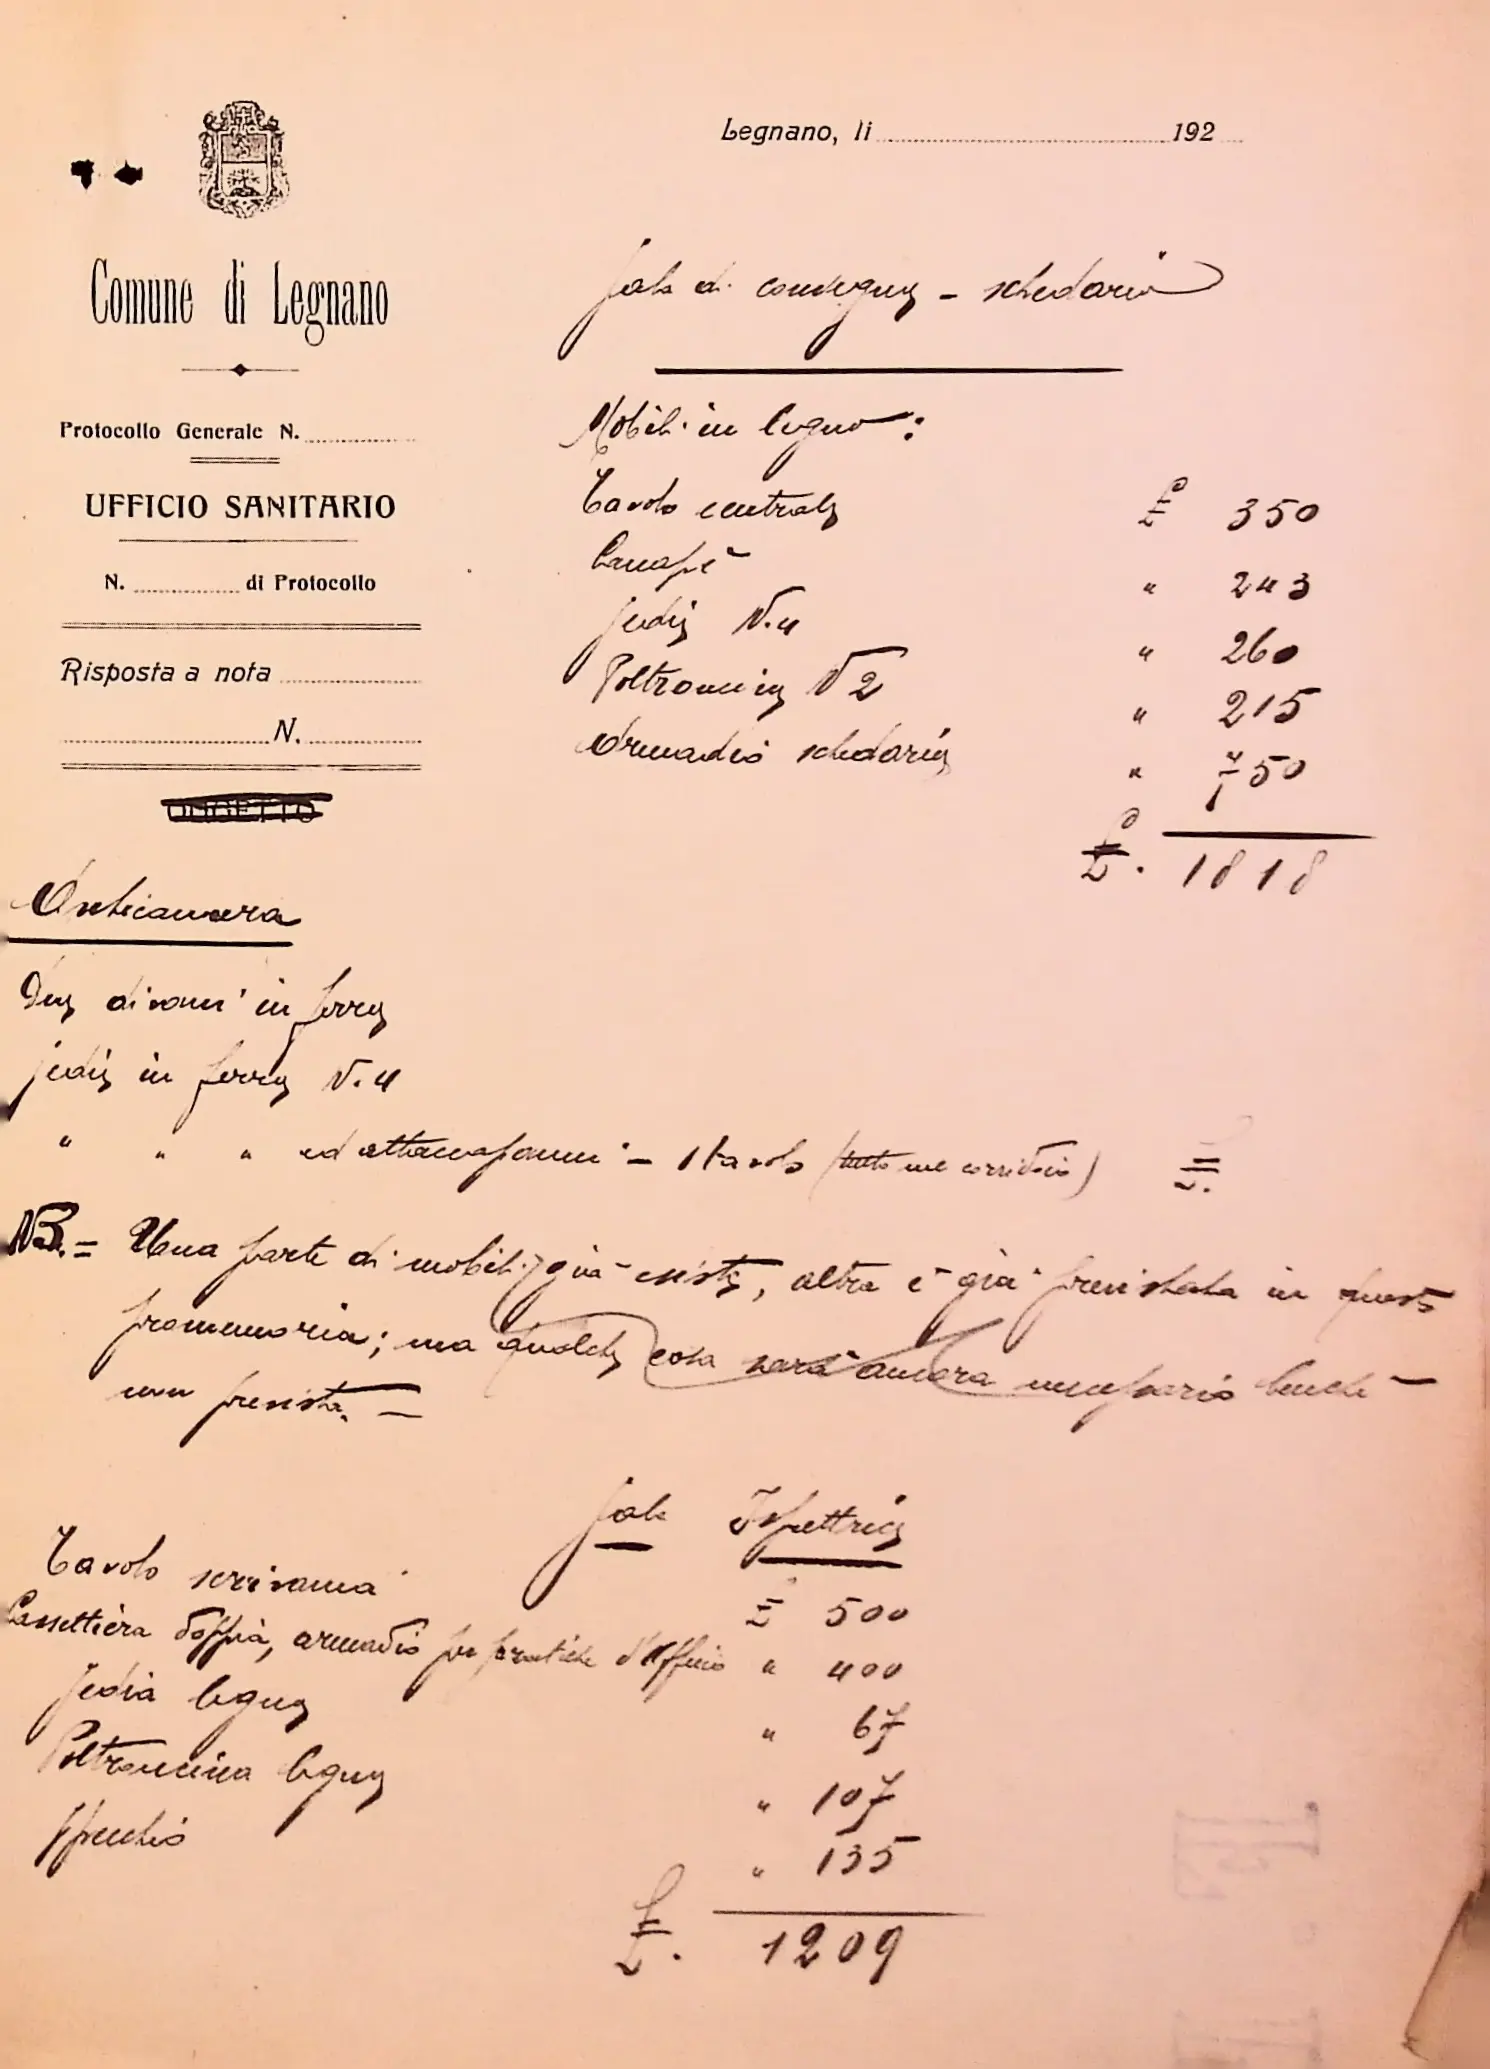 Legnano, li 192
Comune di Legnano
Protocollo Generale N.
UFFICIO SANITARIO
N. di Protocollo
Risposta a nota
N.
OGGETTO
Sala di convegno - schedario
Mobili in legno:
Tavolo centrale £ 350
Canapè " 243
Sedie N. 4 " 260
Poltroncine N 2 " 215
Armadio schedario " 750
£. 1818
Anticamera
Due divani in ferro
Sedie in ferro N. 4
" " " ed attaccapanni - 1 tavolo (tutto nel corridoio) £.
NB. = Una parte di mobili già esiste, altra è già preventivata in questo
promemoria; ma qualche cosa sarà ancora necessario benchè
non prevista. =
Sala Ispettrice
Tavolo scrivania £ 500
Cassettiera doppia, armadio per pratiche d'Ufficio " 400
Sedia legno " 67
Poltroncina legno " 107
Specchio " 135
£. 1209